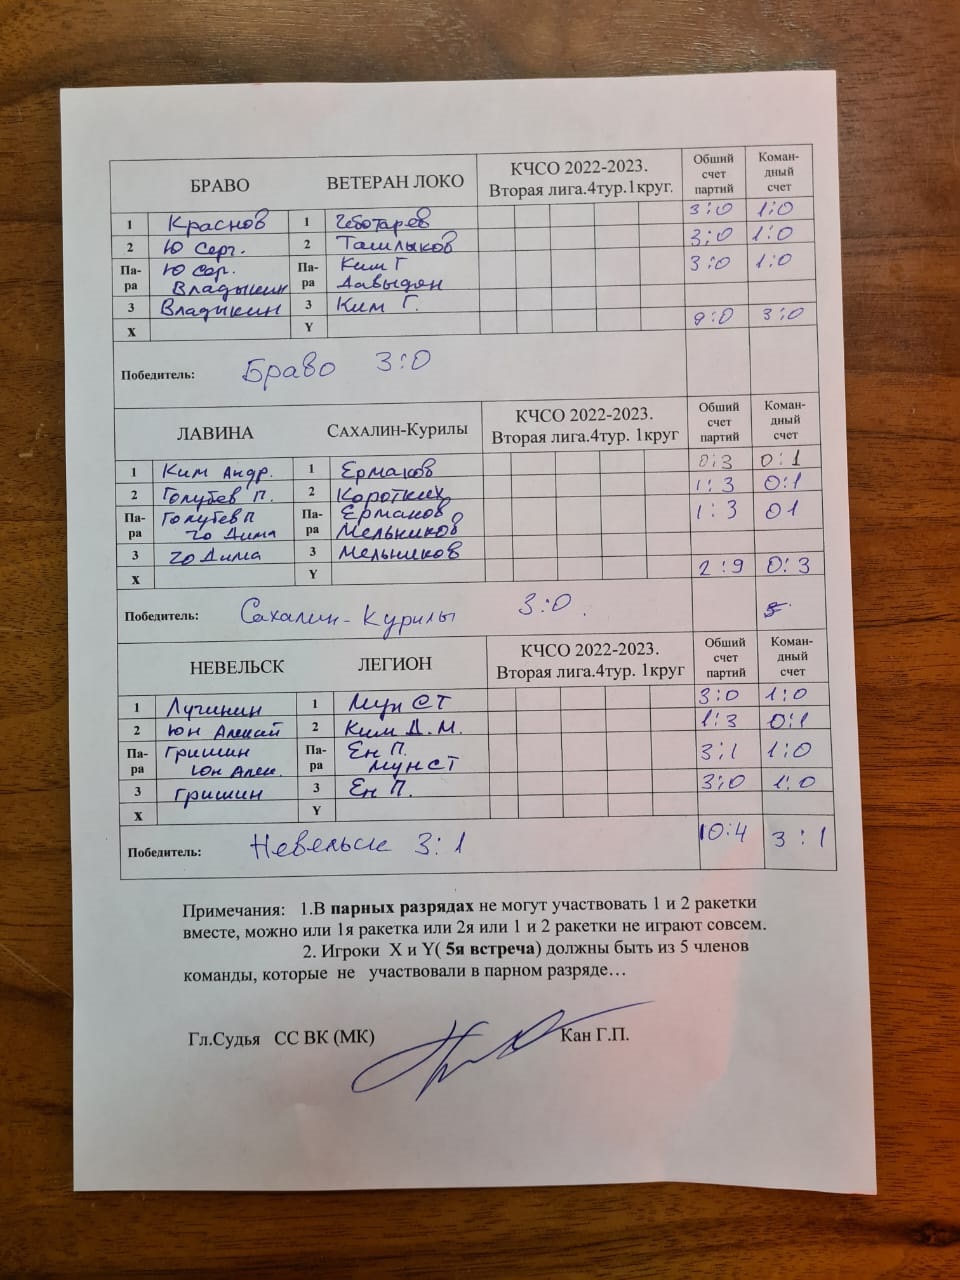 БРАВО ВЕТЕРАН ЛОКО КЧСО 2022-2023. Вторая лига.4тур.1круг. Обший счет партий Коман-дный счет
1 Краснов 1 Чеботарев 3:0 1:0
2 Ю Серг. 2 Ташлыков 3:0 1:0
Па-ра Ю Сер. Па-ра Ким Г 3:0 1:0
Владыкин Давыдян
3 Владыкин 3 Ким Г.
X Y 9:0 3:0
Победитель: Браво 3:0
ЛАВИНА САХАЛИН-КУРИЛЫ КЧСО 2022-2023. Вторая лига.4тур. 1круг Обший счет партий Коман-дный счет
1 Ким Андр. 1 Ермаков 0:3 0:1
2 Голубев П. 2 Коротких 1:3 0:1
Па-ра Голубев П Па-ра Ермаков 1:3 01
Чо Дима Мельников
3 Чо Дима 3 Мельников
X Y 2:9 0:3
Победитель: Сахалин-Курилы 3:0.
НЕВЕЛЬСК ЛЕГИОН КЧСО 2022-2023. Вторая лига.4тур. 1круг Обший счет партий Коман-дный счет
1 Лучинин 1 Мун СТ 3:0 1:0
2 Юн Алексей 2 Ким Д.М. 1:3 0:1
Па-ра Гришин Па-ра Ен П. 3:1 1:0
Юн Алек. Мун СТ
3 Гришин 3 Ен П. 3:0 1:0
X Y
Победитель: Невельск 3:1 10:4 3:1
Примечания: 1.В парных разрядах не могут участвовать 1 и 2 ракетки
вместе, можно или 1я ракетка или 2я или 1 и 2 ракетки не играют совсем.
2. Игроки X и Y( 5я встреча) должны быть из 5 членов
команды, которые не участвовали в парном разряде…
Гл.Судья СС ВК (МК) Кан Г.П.